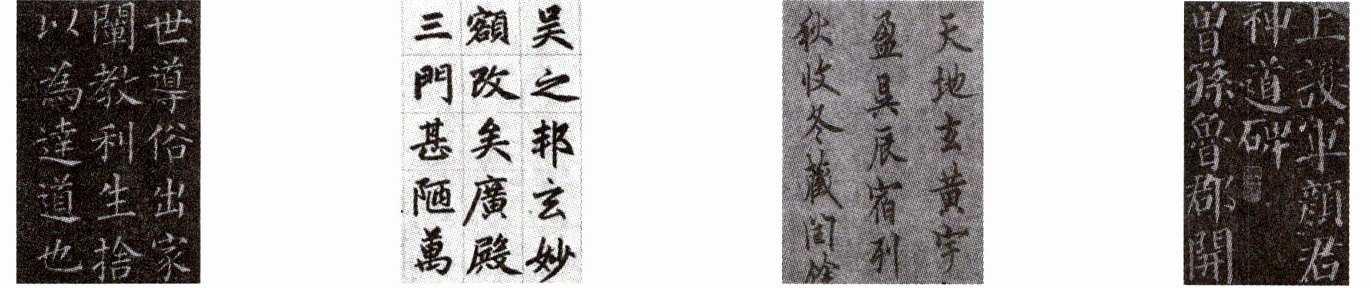 世導俗出家
闡教利生捨
以為達道也
吴之邦玄妙
額改矣廣殿
三門甚陋萬
天地玄黃宇
盈昃辰宿列
秋收冬藏閏餘
上護軍顏君
神道碑
曾孫魯郡開